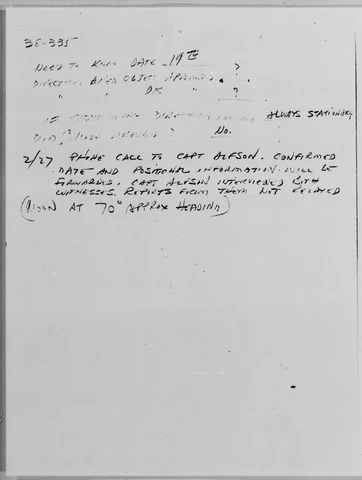 38-335
NEED TO KNOW DATE 19TH ?
DIRECTION WHEN OBJECT APPEARED ?
" " " DIS ?
IF STATIONARY DIRECTION ALWAYS STATIONARY
DID IT MOVE AROUND? NO.
2/27 PHONE CALL TO CAPT ALFSON. CONFIRMED
DATE AND POSITIONAL INFORMATION WILL BE
FORWARDED. CAPT ALFSON INTERVIEWED BOTH
WITNESSES. REPORTS FROM THEM NOT RELATED
(MOON AT 70° APPROX HEADING)